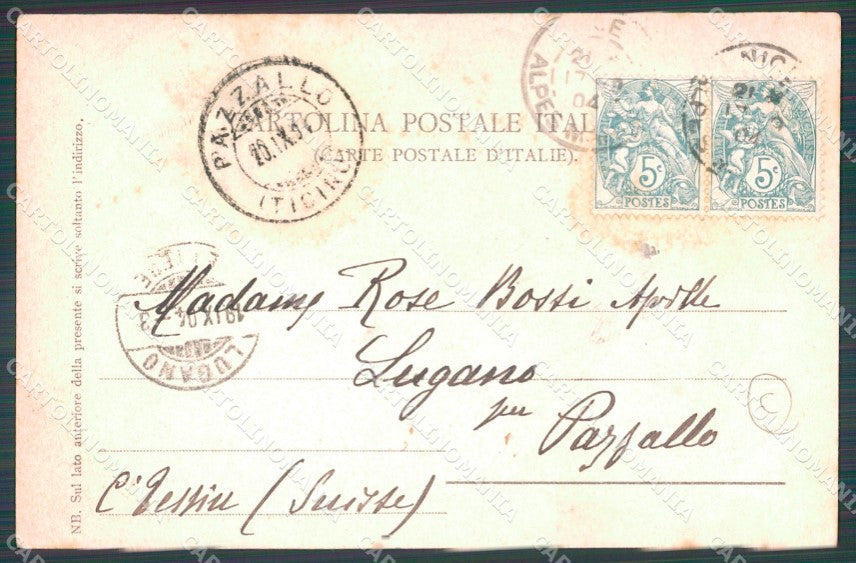 CARTOLINA POSTALE ITAL
(CARTE POSTALE D'ITALIE).
PAZZALLO
20.IX.04
(TICINO)
ALPE
17
04
NICE
5c
POSTES
5c
POSTES
LUGANO
19.IX.04
Madame Rose Bossi
Lugano
per Pazzallo
(Suisse)
NB. Sul lato anteriore della presente si scrive soltanto l'indirizzo.
CARTOLINOMANIA